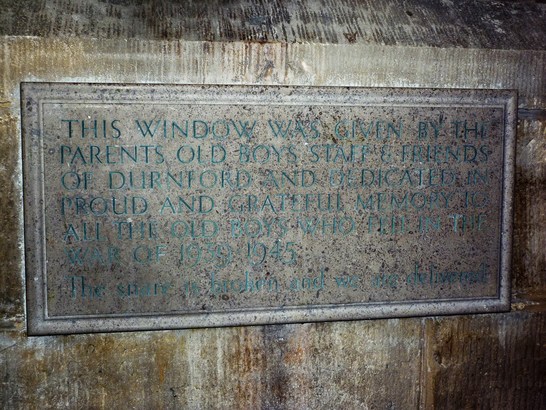 THIS WINDOW WAS GIVEN BY THE
PARENTS, OLD BOYS, STAFF & FRIENDS
OF DURNFORD AND DEDICATED IN
PROUD AND GRATEFUL MEMORY TO
ALL THE OLD BOYS WHO FELL IN THE
WAR OF 1939-1945
The snare is broken and we are delivered